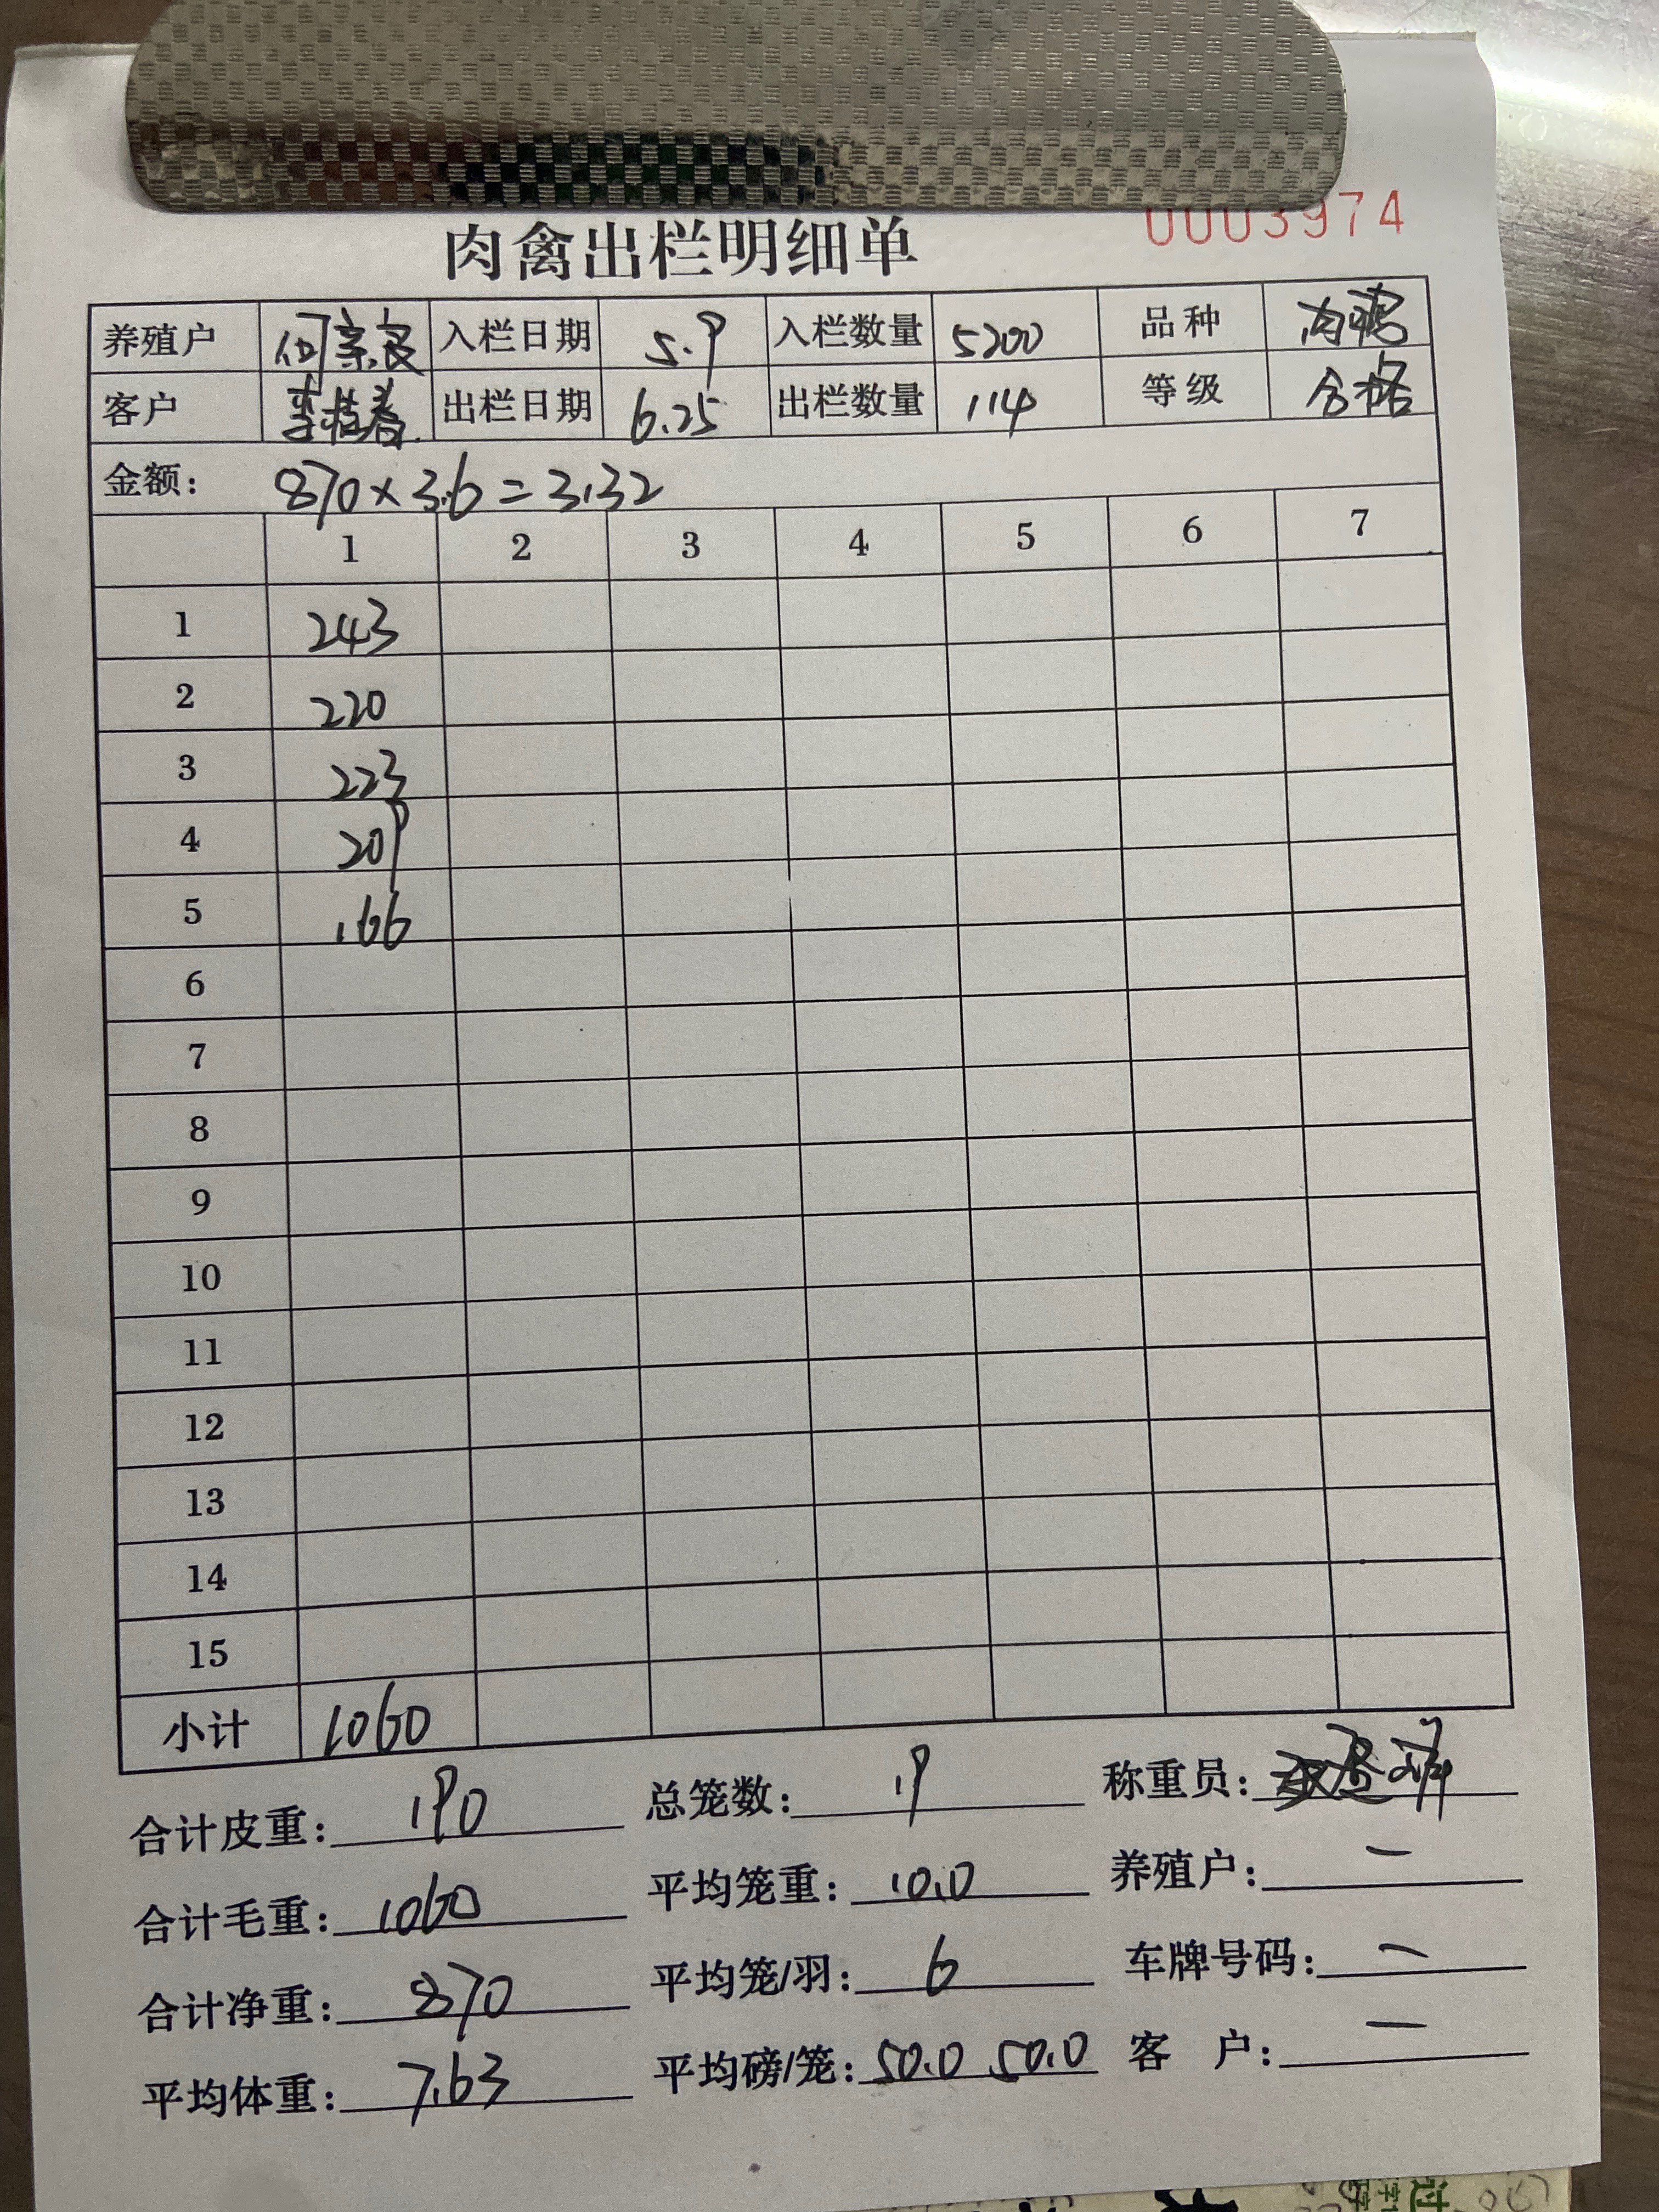 0003974
肉禽出栏明细单
养殖户 何宗良 入栏日期 5.9 入栏数量 5200 品种 肉鸭
客户 李桂春 出栏日期 6.25 出栏数量 114 等级 合格
金额: 870×3.6=3132
1 2 3 4 5 6 7
1 243
2 220
3 223
4 209
5 166
6
7
8
9
10
11
12
13
14
15
小计 1060
合计皮重: 190 总笼数: 19 称重员:
合计毛重: 1060 平均笼重: 10.0 养殖户: 一
合计净重: 870 平均笼/羽: 6 车牌号码: 一
平均体重: 7.63 平均磅/笼: 50.0 50.0 客 户: 一